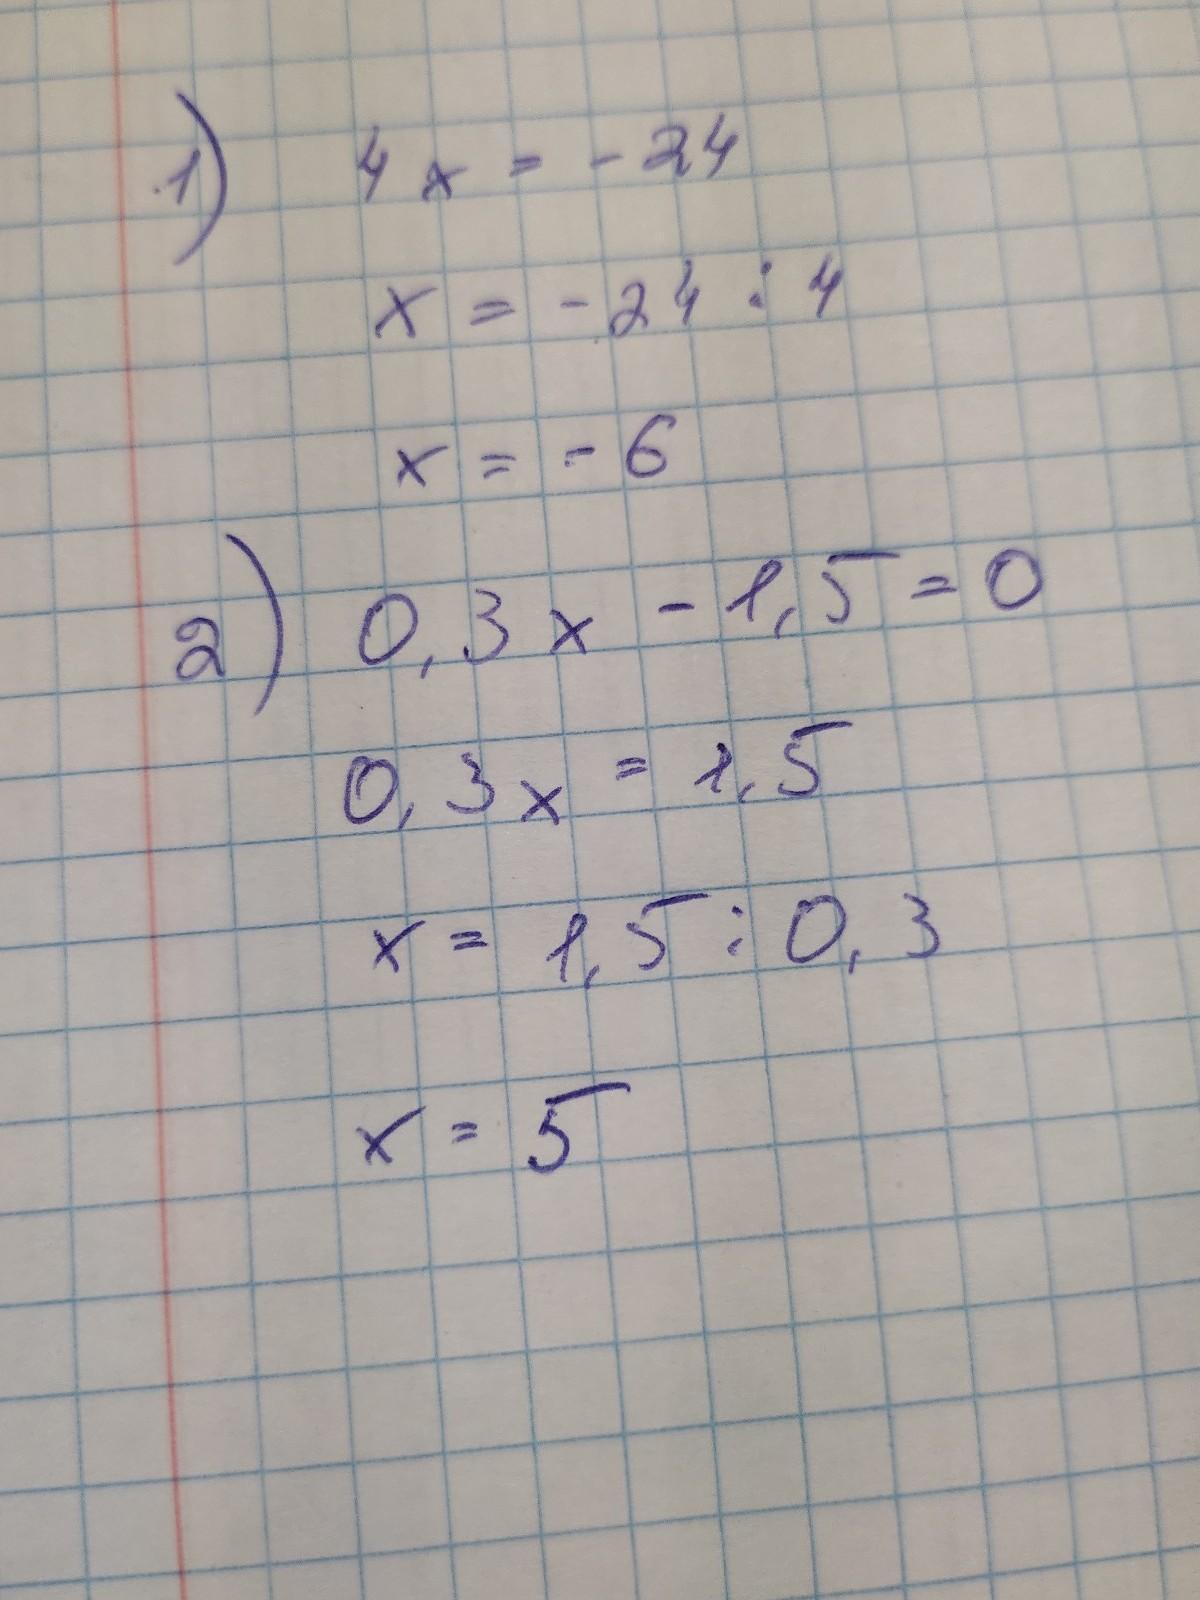 1) 4x = -24
x = -24 : 4
x = -6
2) 0,3x - 1,5 = 0
0,3x = 1,5
x = 1,5 : 0,3
x = 5